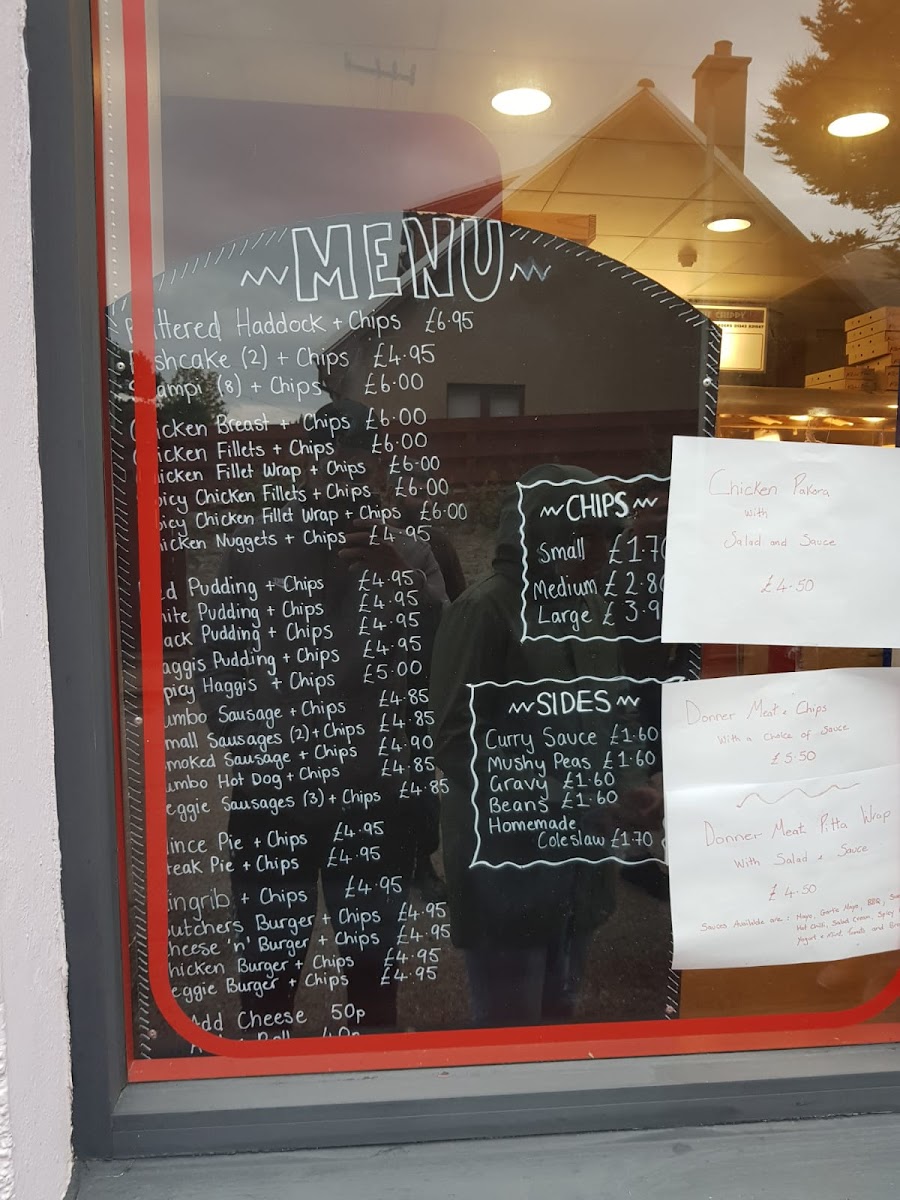 MENU
Battered Haddock + Chips £6.95
Fishcake (2) + Chips £4.95
Scampi (8) + Chips £6.00
Chicken Breast + Chips £6.00
Chicken Fillets + Chips £6.00
Chicken Fillet Wrap + Chips £6.00
Spicy Chicken Fillets + Chips £6.00
Spicy Chicken Fillet Wrap + Chips £6.00
Chicken Nuggets + Chips £4.95
Red Pudding + Chips £4.95
White Pudding + Chips £4.95
Black Pudding + Chips £4.95
Haggis Pudding + Chips £4.95
Spicy Haggis + Chips £5.00
Jumbo Sausage + Chips £4.85
Small Sausages (2) + Chips £4.85
Smoked Sausage + Chips £4.90
Jumbo Hot Dog + Chips £4.85
Veggie Sausages (3) + Chips £4.85
Mince Pie + Chips £4.95
Steak Pie + Chips £4.95
Kingrib + Chips £4.95
Butchers Burger + Chips £4.95
Cheese 'n' Burger + Chips £4.95
Chicken Burger + Chips £4.95
Veggie Burger + Chips £4.95
Add Cheese 50p
Roll 40p
CHIPS
Small £1.70
Medium £2.80
Large £3.9
SIDES
Curry Sauce £1.60
Mushy Peas £1.60
Gravy £1.60
Beans £1.60
Homemade
Coleslaw £1.70
CHIPPY
Chicken Pakora
with
Salad and Sauce
£4.50
Donner Meat & Chips
With a Choice of Sauce
£5.50
Donner Meat Pitta Wrap
With Salad & Sauce
£4.50
Sauces Available are: Mayo, Garlic Mayo, BBQ,
Hot Chilli, Salad Cream, Spicy
Yogurt & Mint, Tomato and